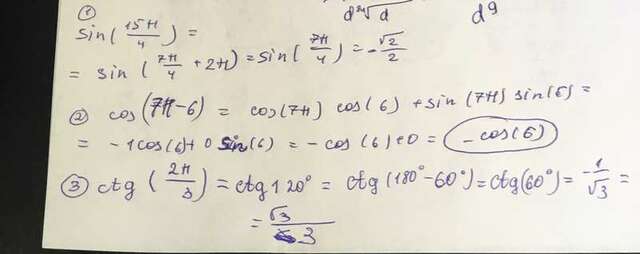 d²√d d9
①
sin(15π/4) =
= sin (7π/4 + 2π) = sin (7π/4) = -√2/2
② cos(7π-6) = cos(7π) cos(6) + sin(7π) sin(6) =
= -1cos(6)+ 0 sin(6) = -cos(6)+0 = -cos(6)
③ ctg (2π/3) = ctg120° = ctg(180°-60°) = ctg(60°) = -1/√3 =
= √3/3